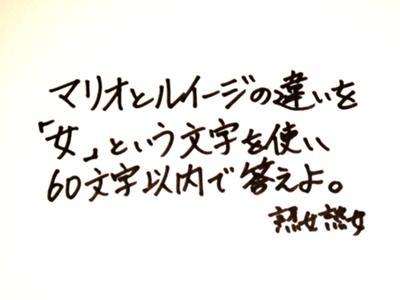 マリオとルイージの違いを
「女」という文字を使い、
60文字以内で答えよ。
熟女熟女